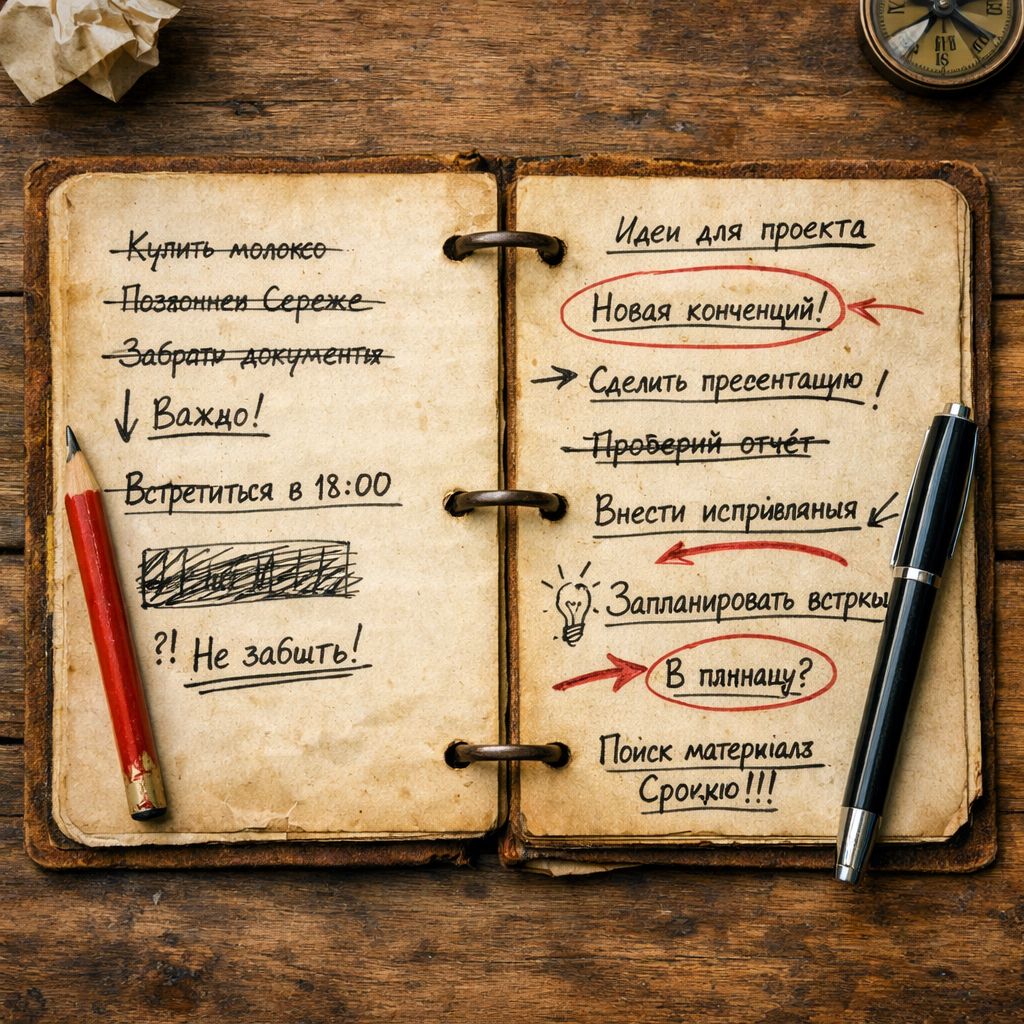 Купить молоксо
Позвоннеи Сереже
Забрати документя
Важцо!
Встретиться в 18:00
?! Не забшть!
Идеи для проекта
Новая конченций!
Сделить пресентацию!
Проберий отчёт
Внести испрівляныя
Запланировать встркы
В плннацу?
Поиск материіалз
Срочкю!!!